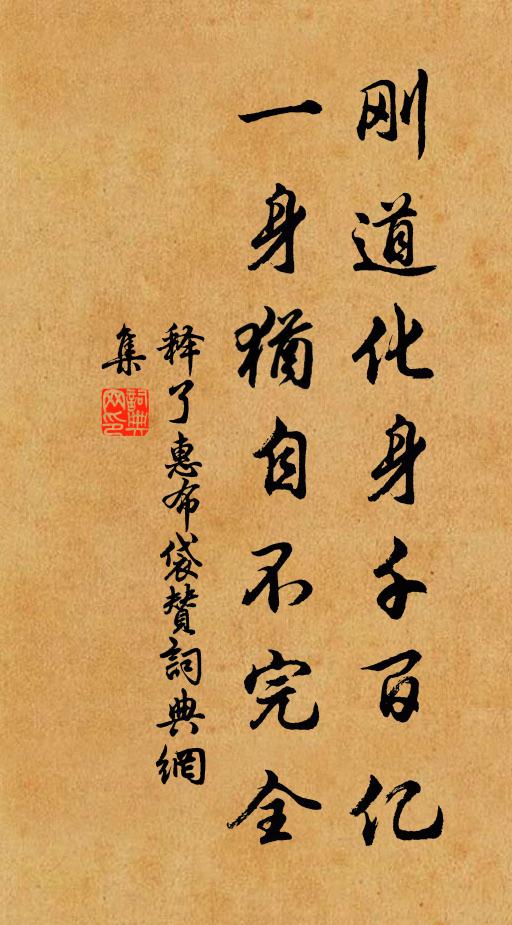 刚道化身千百亿
一身猶自不完全
释了惠布袋赞詞典網
集
詞典
网印